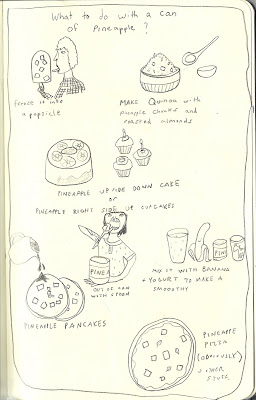 What to do with a can
of Pineapple?
freeze it into
a popsicle
MAKE Quinoa with
pineapple chunks and
roasted almonds
PINEAPPLE UPSIDE DOWN CAKE
or
PINEAPPLE RIGHT SIDE UP CUPCAKES
PINEA
OUT OF CAN
WITH SPOON
MIX IT WITH BANANA
+ YOGURT TO MAKE A
SMOOTHY
PINEAPPLE PANCAKES
PINEAPPLE
PIZZA
(OBVIOUSLY)